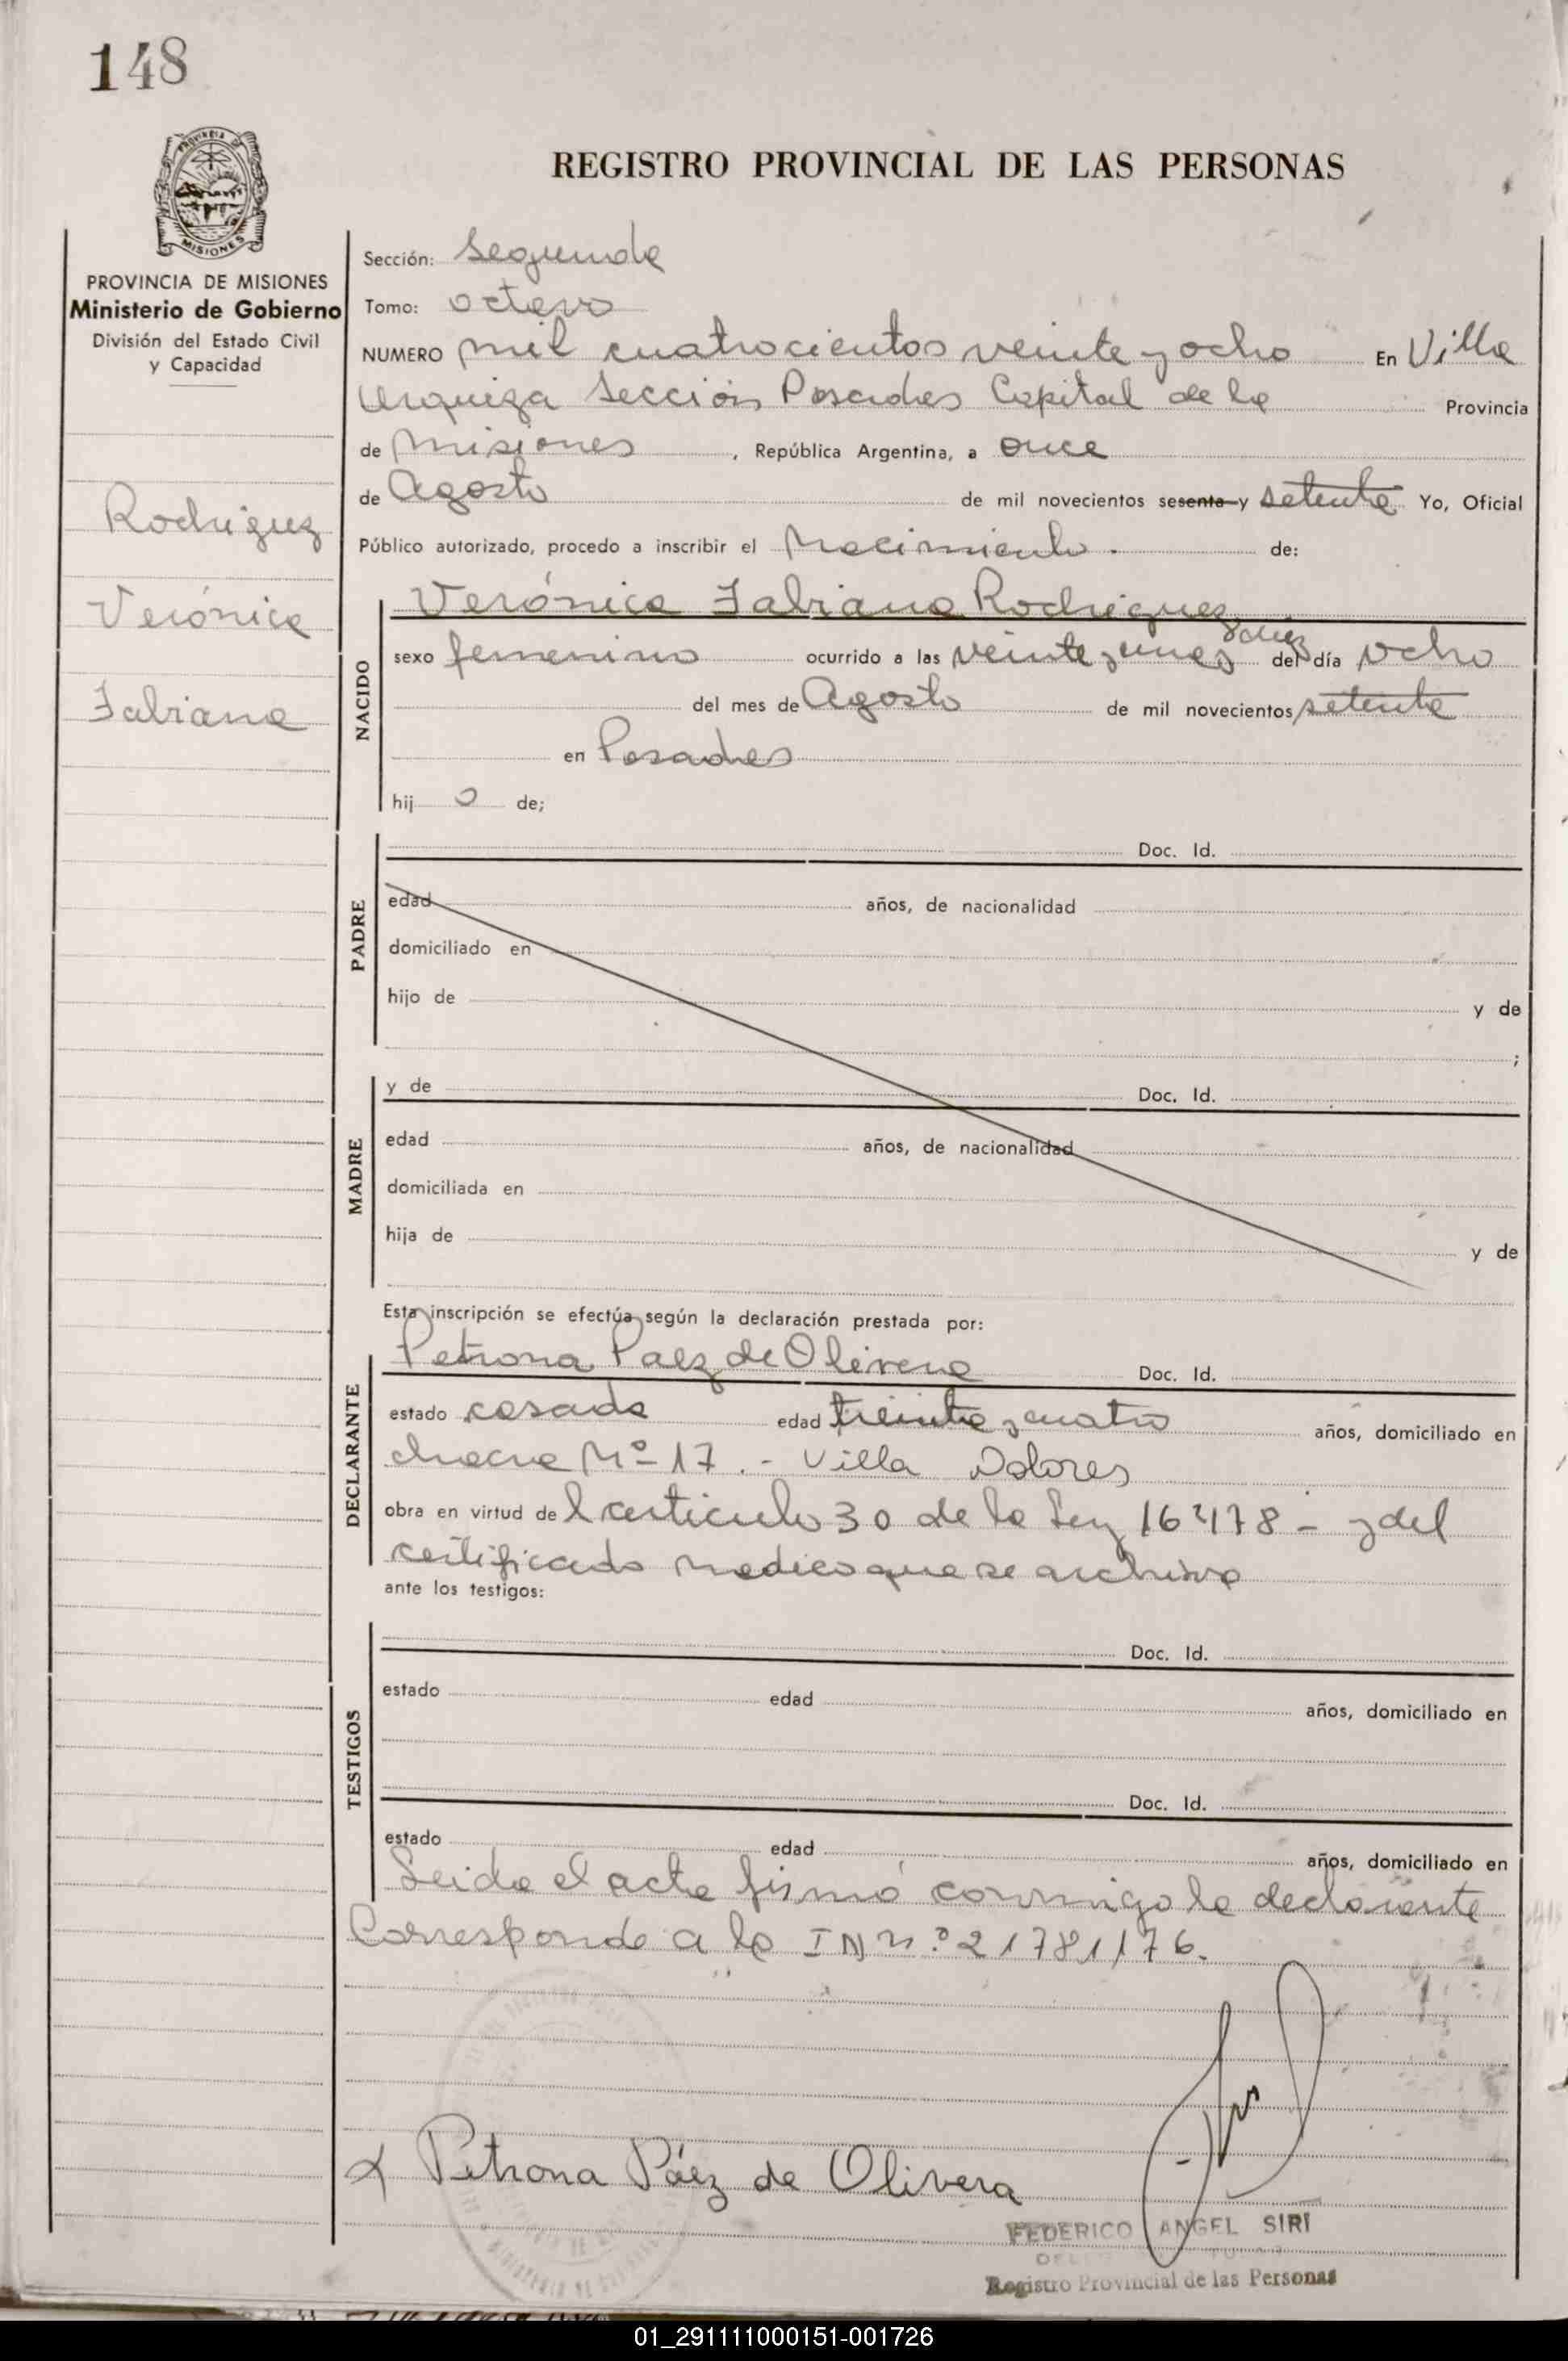 148
PROVINCIA DE
MISIONES
REGISTRO PROVINCIAL DE LAS PERSONAS
PROVINCIA DE MISIONES
Ministerio de Gobierno
División del Estado Civil
y Capacidad
Rodriguez
Verónica
Fabiana
Sección: Segunda
Tomo: octavo
NUMERO mil cuatrocientos veinte y ocho En Villa
Urquiza Sección Posadas Capital de la Provincia
de Misiones, República Argentina, a once
de Agosto de mil novecientos sesenta y setenta Yo, Oficial
Público autorizado, procedo a inscribir el Nacimiento. de:
NACIDO
Verónica Fabiana Rodriguez
y diez
sexo femenino ocurrido a las veinte y una del día ocho
del mes de Agosto de mil novecientos setenta
en Posadas
hij o de;
PADRE
Doc. Id.
edad años, de nacionalidad
domiciliado en
hijo de y de
;
MADRE
y de Doc. Id.
edad años, de nacionalidad
domiciliada en
hija de y de
Esta inscripción se efectúa según la declaración prestada por:
DECLARANTE
Petrona Paez de Olivera Doc. Id.
estado casada edad treinta y cuatro años, domiciliado en
chacra Nº 17.- Villa Dolores
obra en virtud de l articulo 30 de la Ley 16478 - y del
certificado medico que se archiva
ante los testigos:
TESTIGOS
Doc. Id.
estado edad años, domiciliado en
Doc. Id.
estado edad años, domiciliado en
Leida el acta firmó conmigo la declarante
Corresponde a la I N n.º 21781176.
x Petrona Páez de Olivera
FEDERICO ANGEL SIRI
Registro Provincial de las Personas
01_291111000151-001726